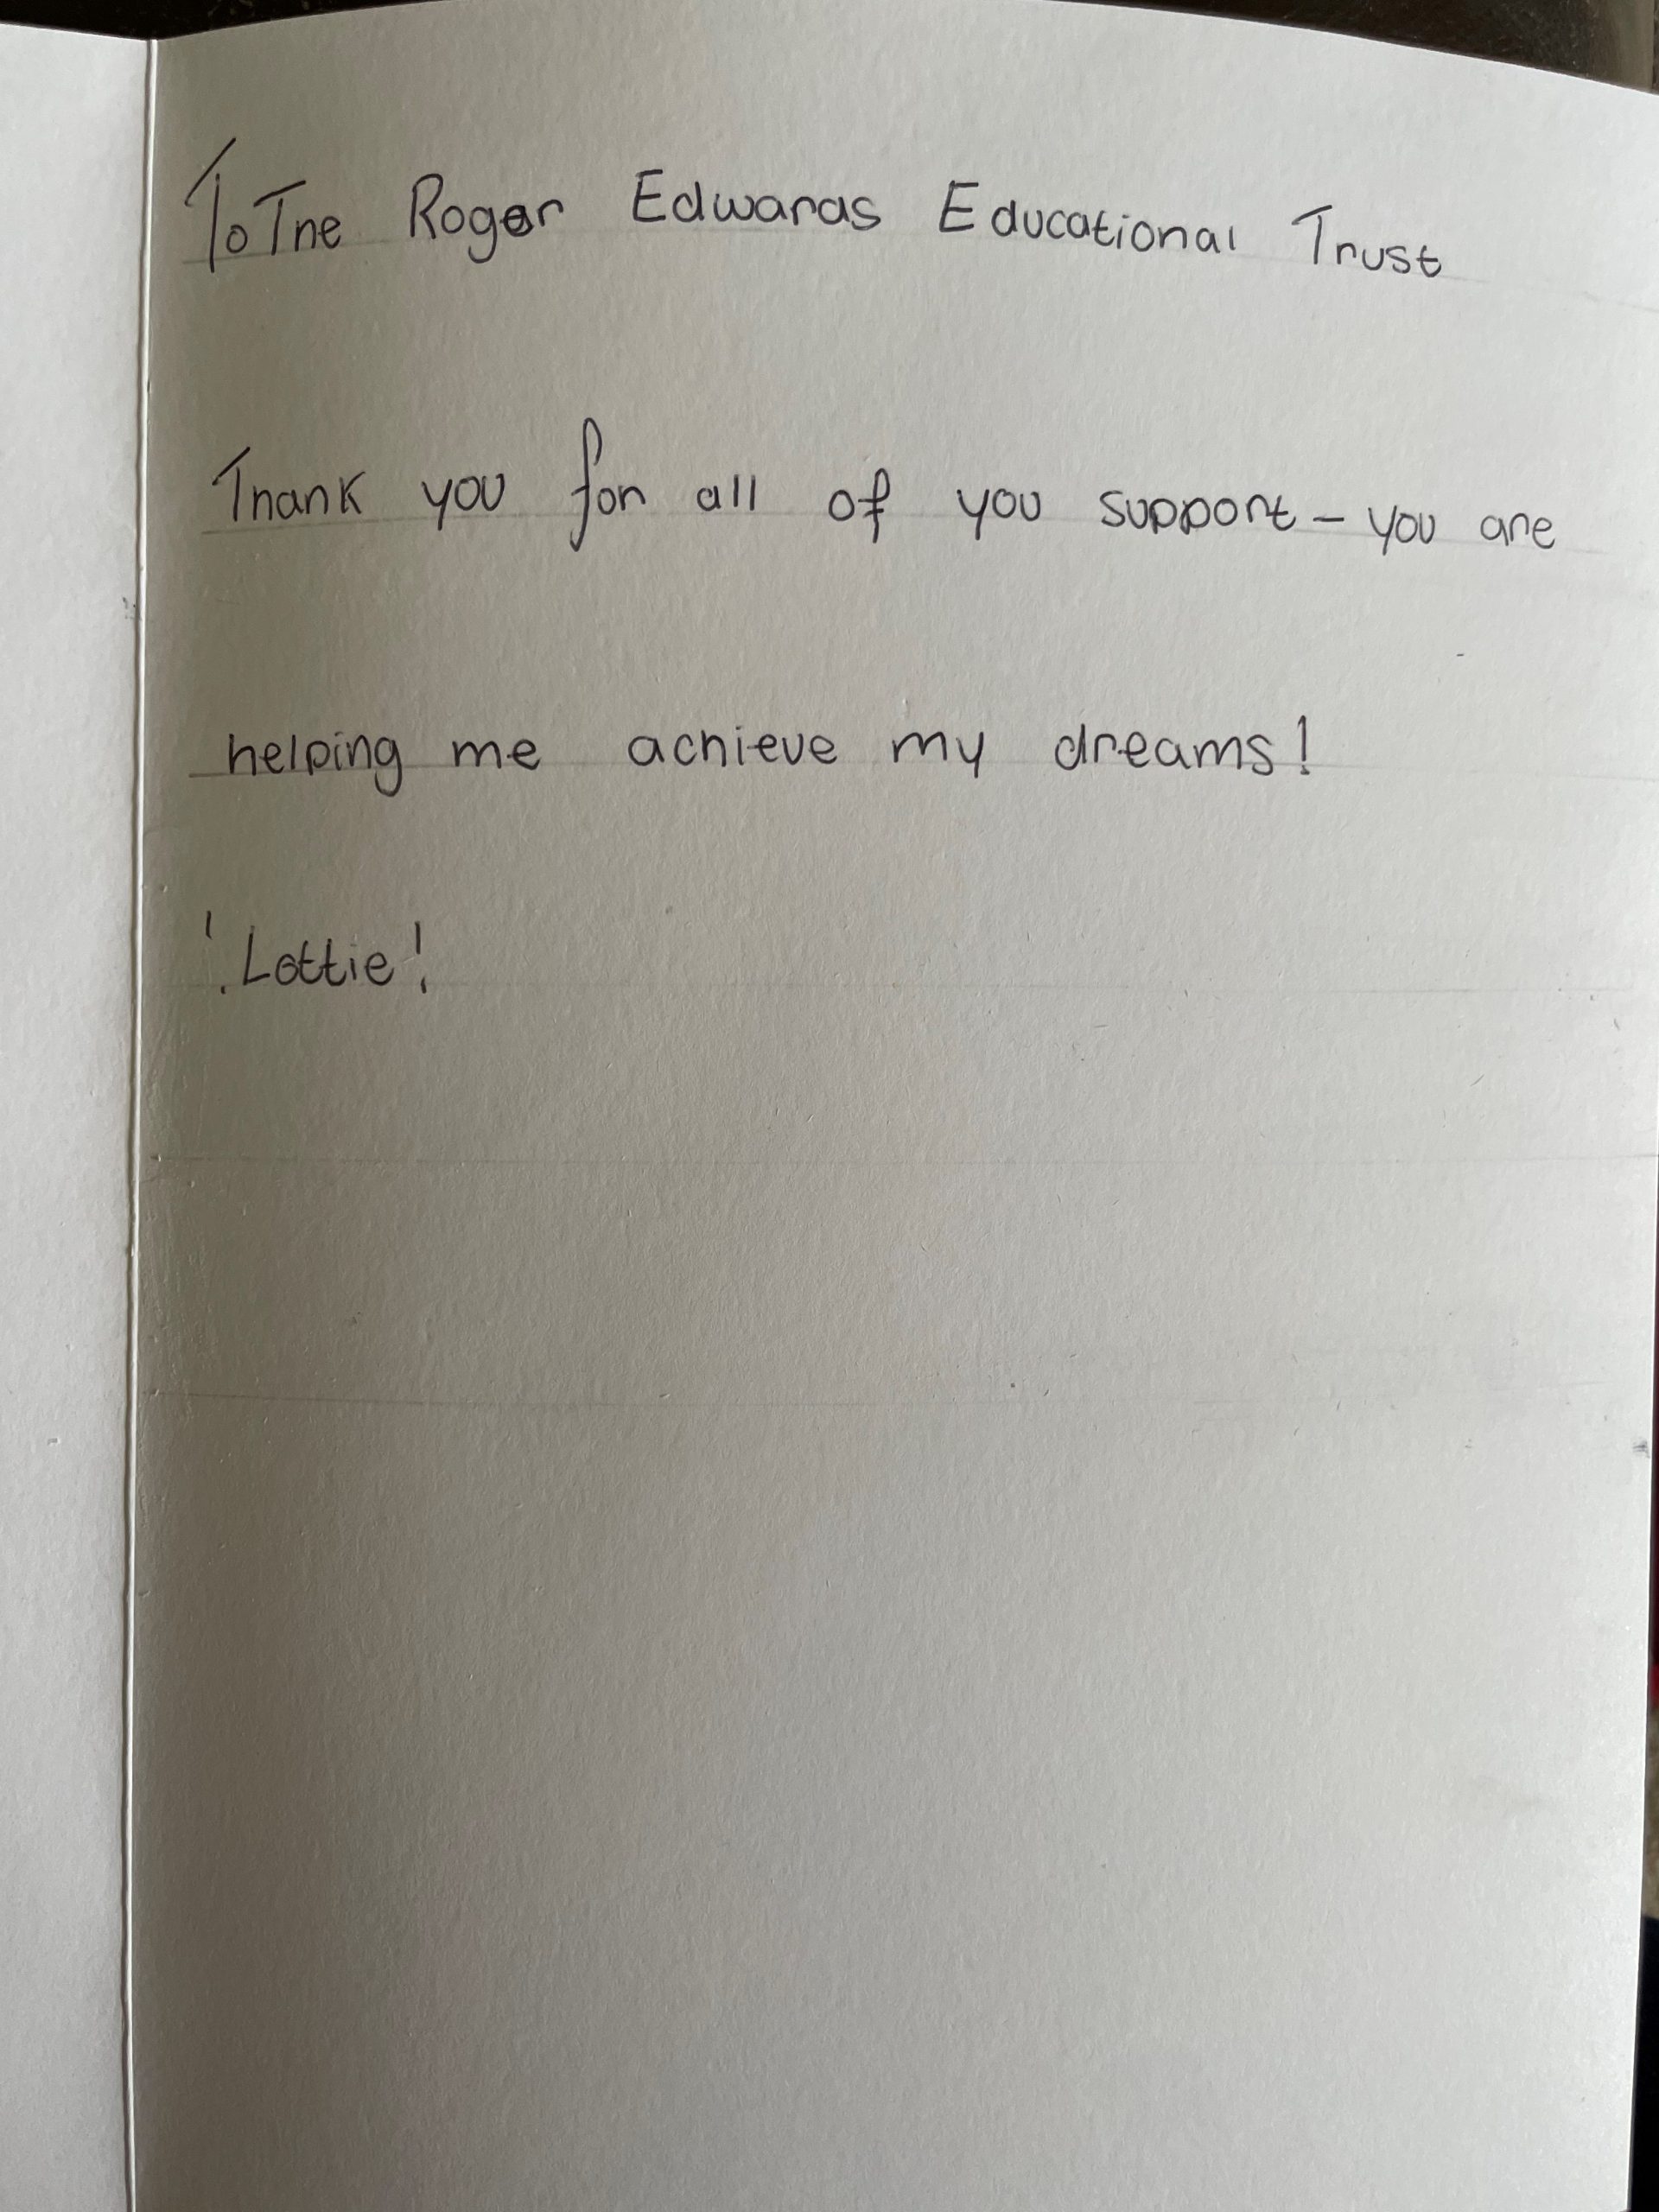 To The Roger Edwards Educational Trust
Thank you for all of you support – you are
helping me achieve my dreams!
! Lottie!